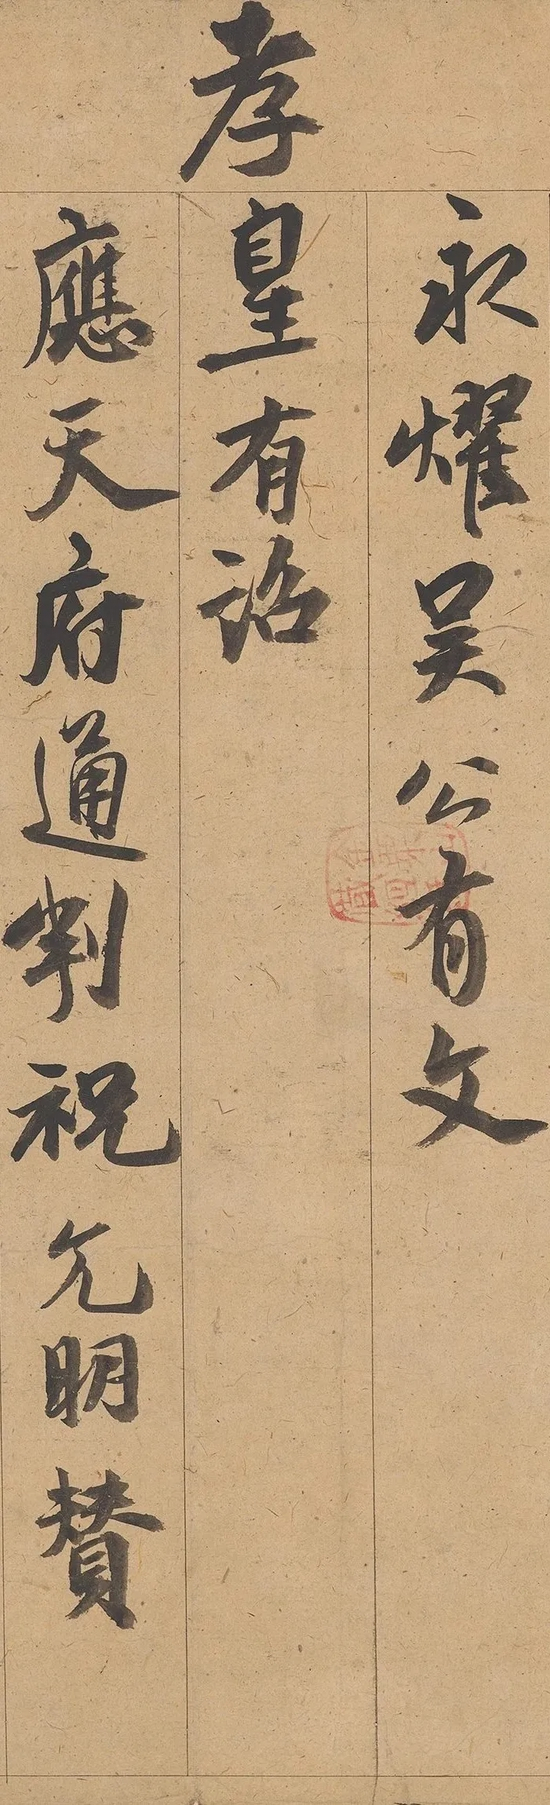 永燿吳公有文
孝皇有詔
應天府通判祝允明贊